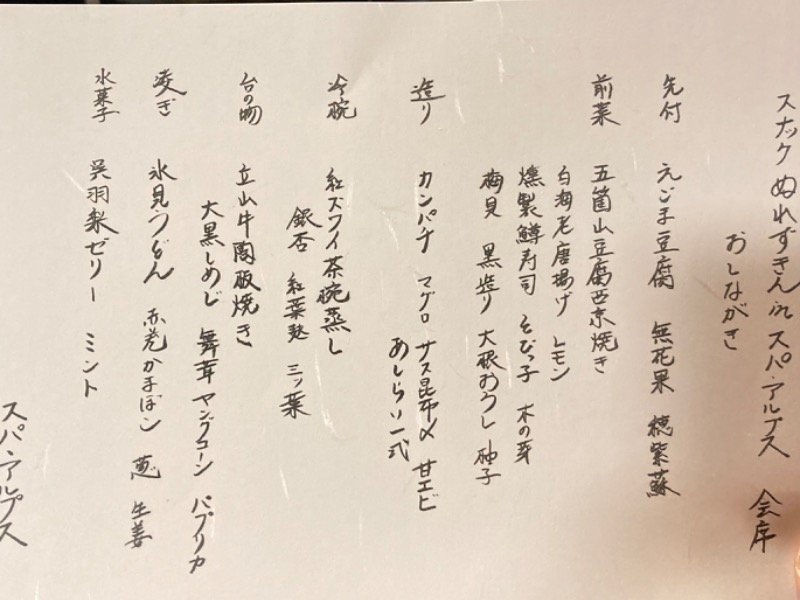 スナック ぬれずきん in スパ・アルプス 会席
おしながき
先付 えごま豆腐 無花果 穂紫蘇
前菜 五箇山豆腐西京焼き
白海老唐揚げ レモン
燻製鱒寿司 とびっ子 木の芽
梅貝 黒造り 大根おろし 柚子
造り カンパチ マグロ サス昆布〆 甘エビ
あしらい一式
冷椀 紅ズワイ茶碗蒸し
銀杏 紅葉麩 三ッ葉
台の物 立山牛陶板焼き
大黒しめじ 舞茸 ヤングコーン パプリカ
凌ぎ 氷見うどん 赤巻かまぼこ 葱 生姜
水菓子 呉羽梨ゼリー ミント
スパ・アルプス